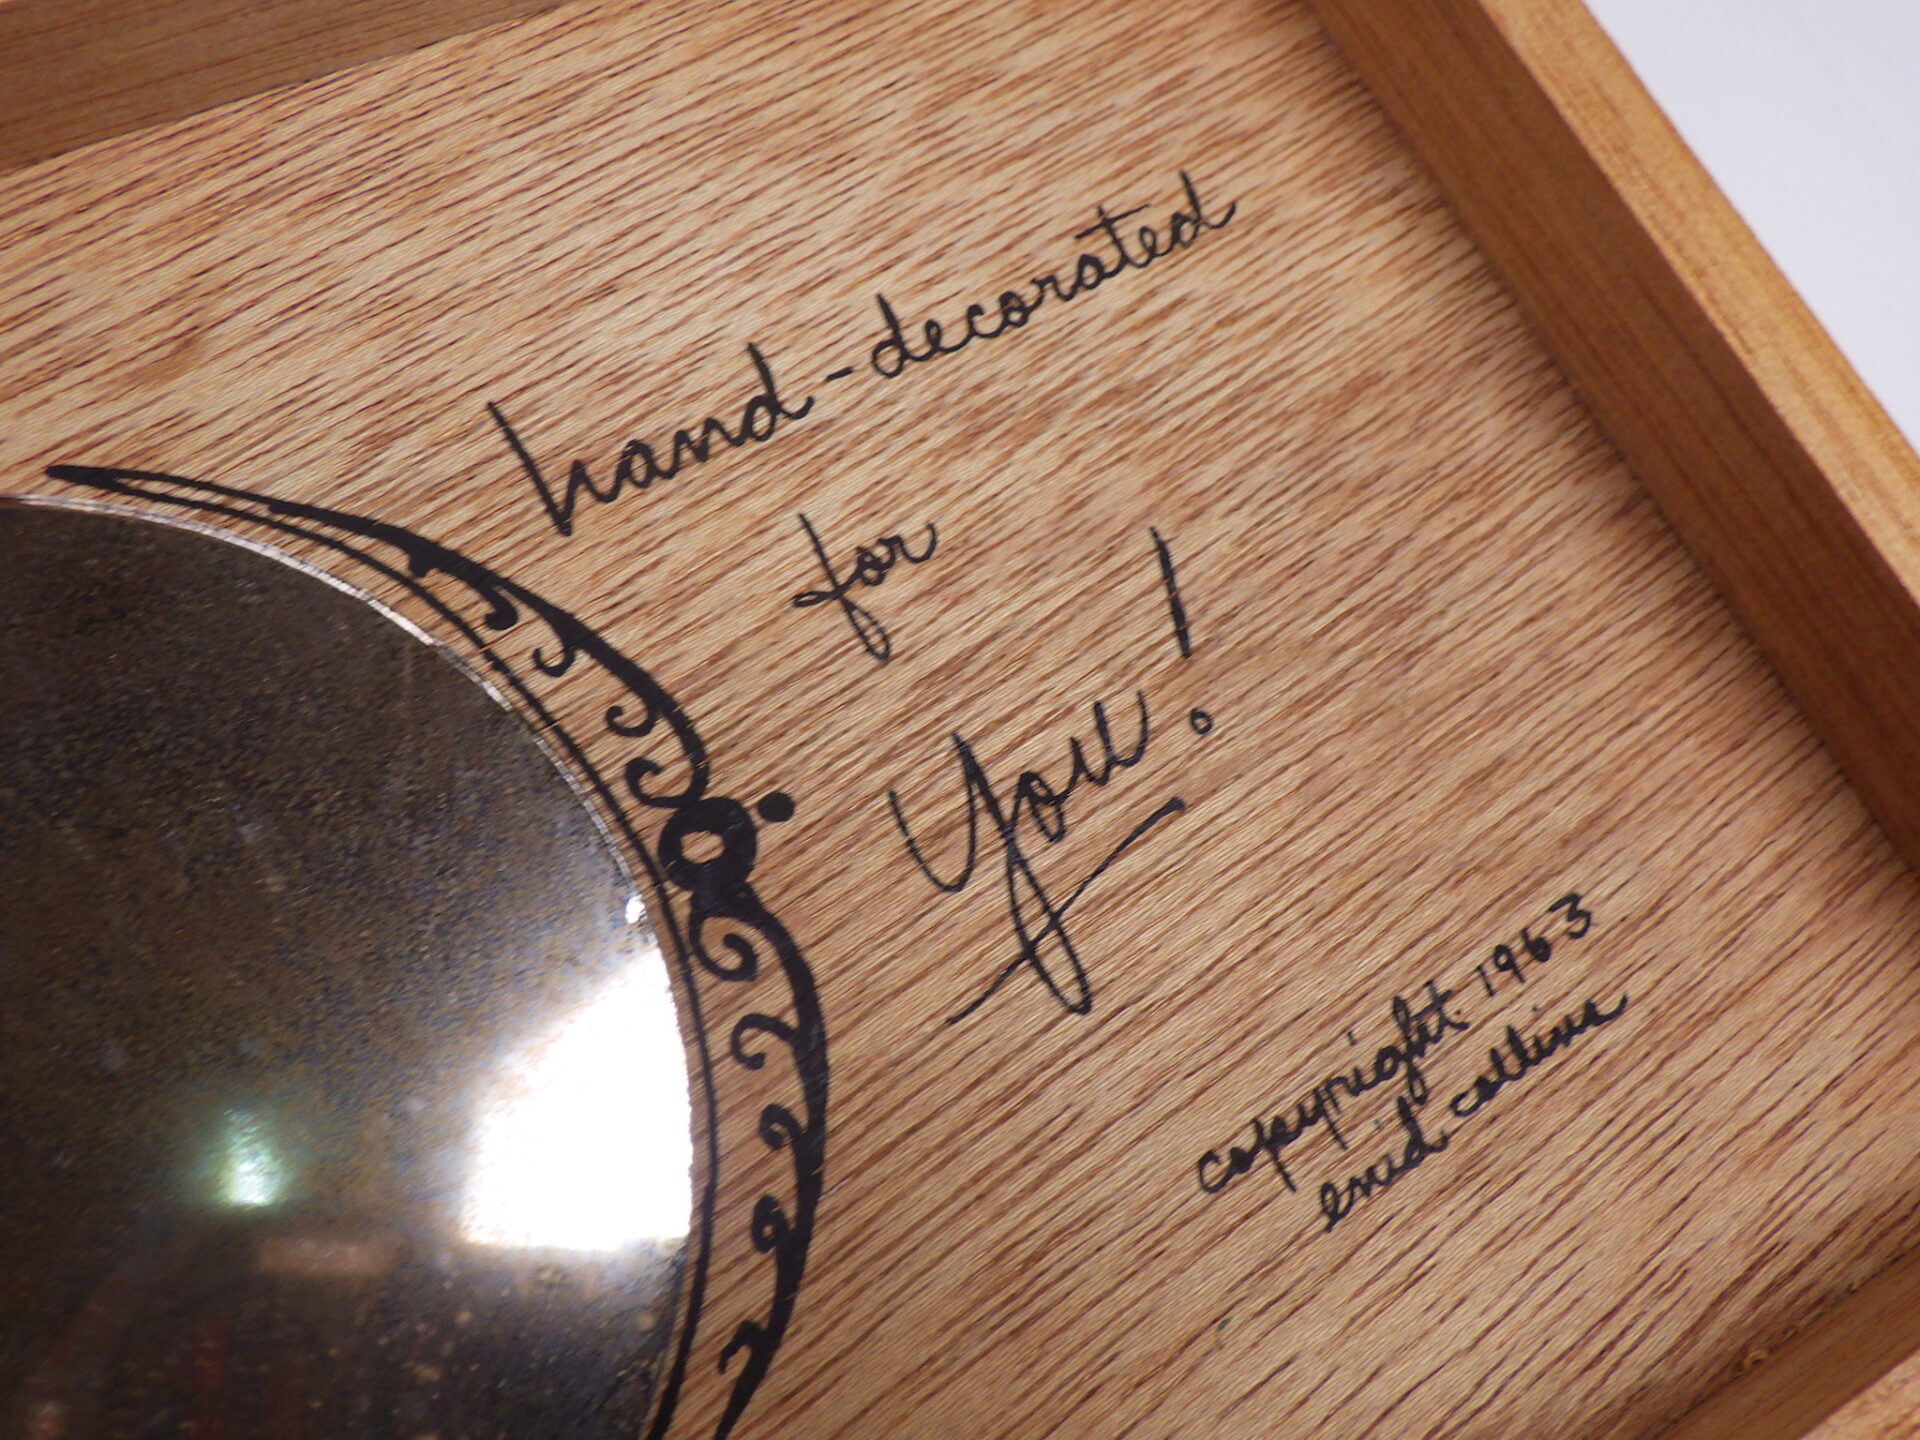 hand-decorated
for
You!
copyright. 1963
enid. collins